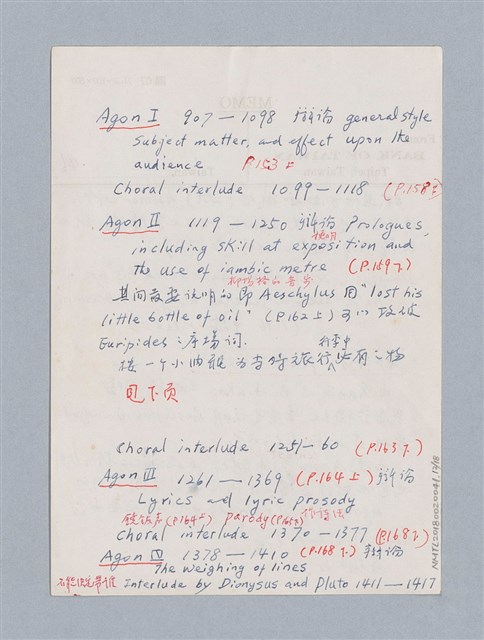 Agon I 907—1098 辯論 general style
subject matter, and effect upon the
audience P.153上
Choral interlude 1099—1118 (P.158下)
Agon II 1119—1250 辯論 Prologues,
說明
including skill at exposition and
the use of iambic metre (P.159下)
抑揚格的音步
其間最要說明的即 Aeschylus 用 "lost his
little bottle of oil" (P.162上) 可以 攻破
Euripides 之序場詞.
按一个小油瓶 为当時之旅行 必有之物
行李中
見下页
Choral interlude 1251—60 (P.163下)
Agon III 1261—1369 (P.164上) 辯論
Lyrics and lyric prosody
(P.164上) parody 作詩法
Choral interlude 1370—1377 (P.168下)
Agon IV 1378—1410 (P.168下) 辯論
The weighing of lines
Interlude by Dionysus and Pluto 1411—1417
NMTL20180020041,17/18
MEMO